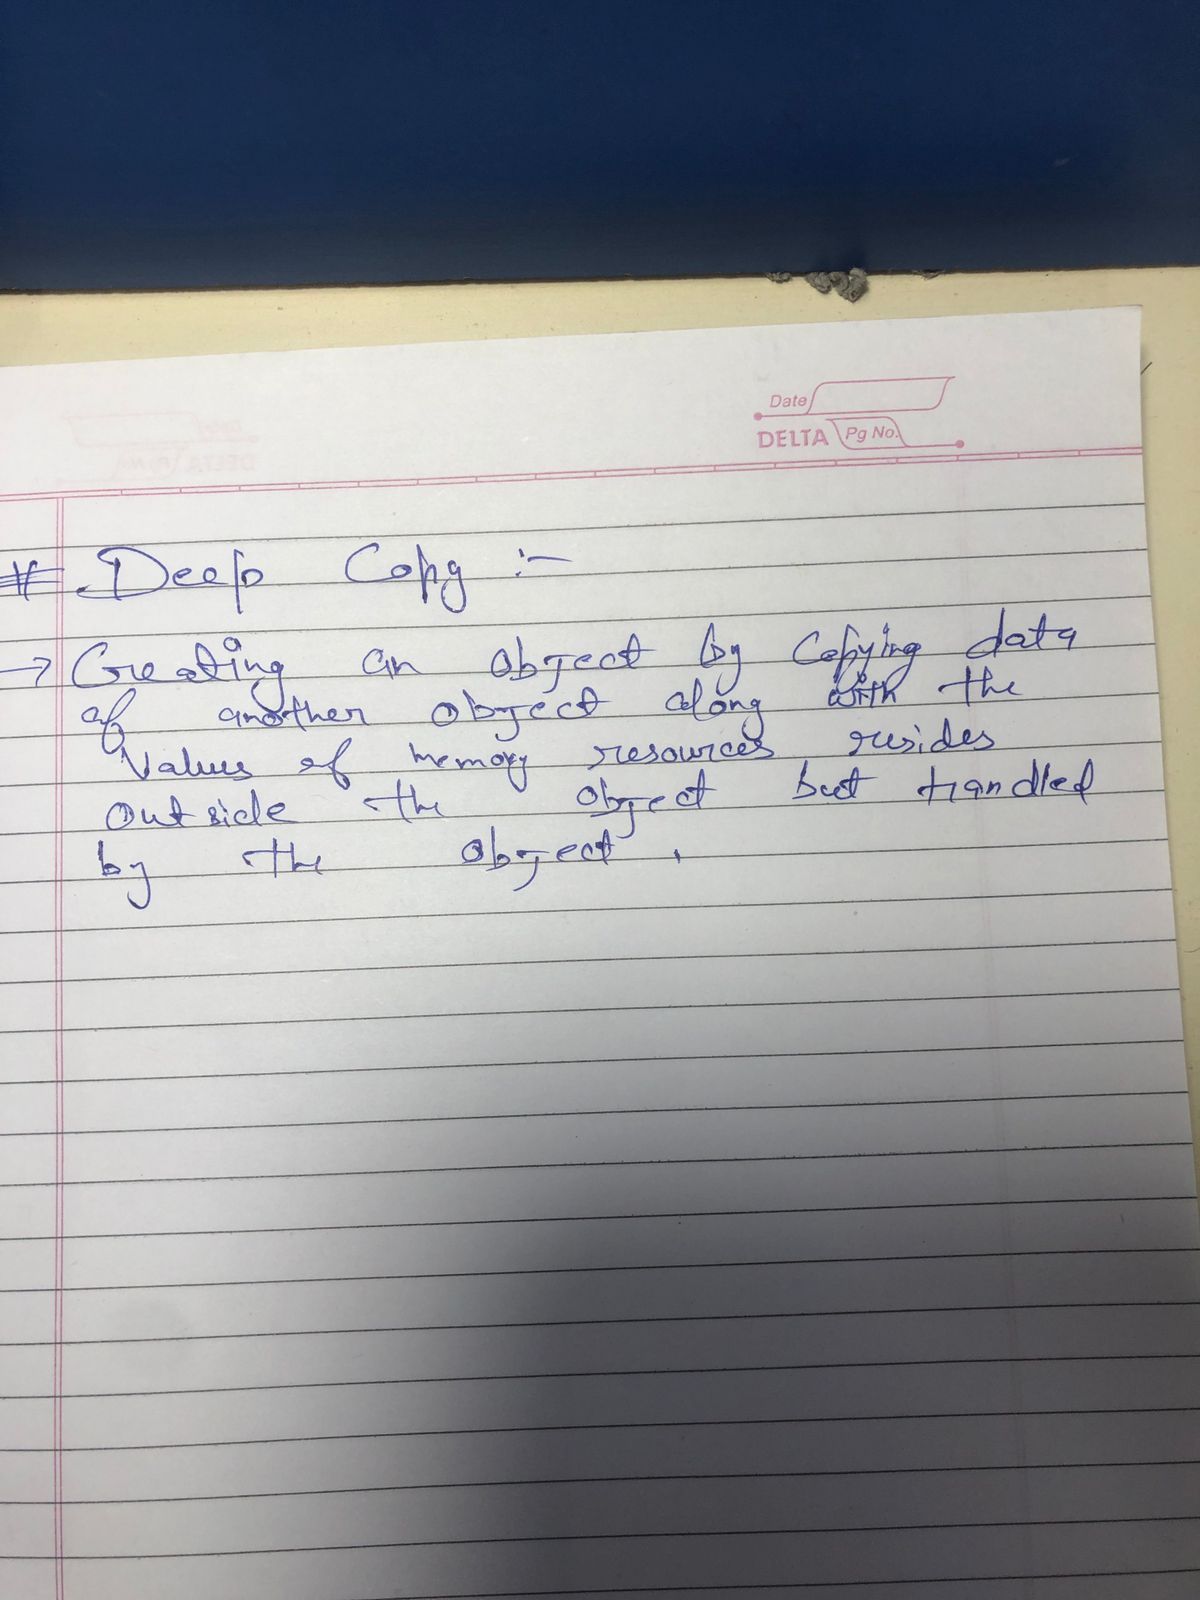 Date
DELTA Pg No.
# Deep Copy :-
→ Creating an object by Copying data
of another object along with the
Values of memory resources resides
outside the object but handled
by the object .